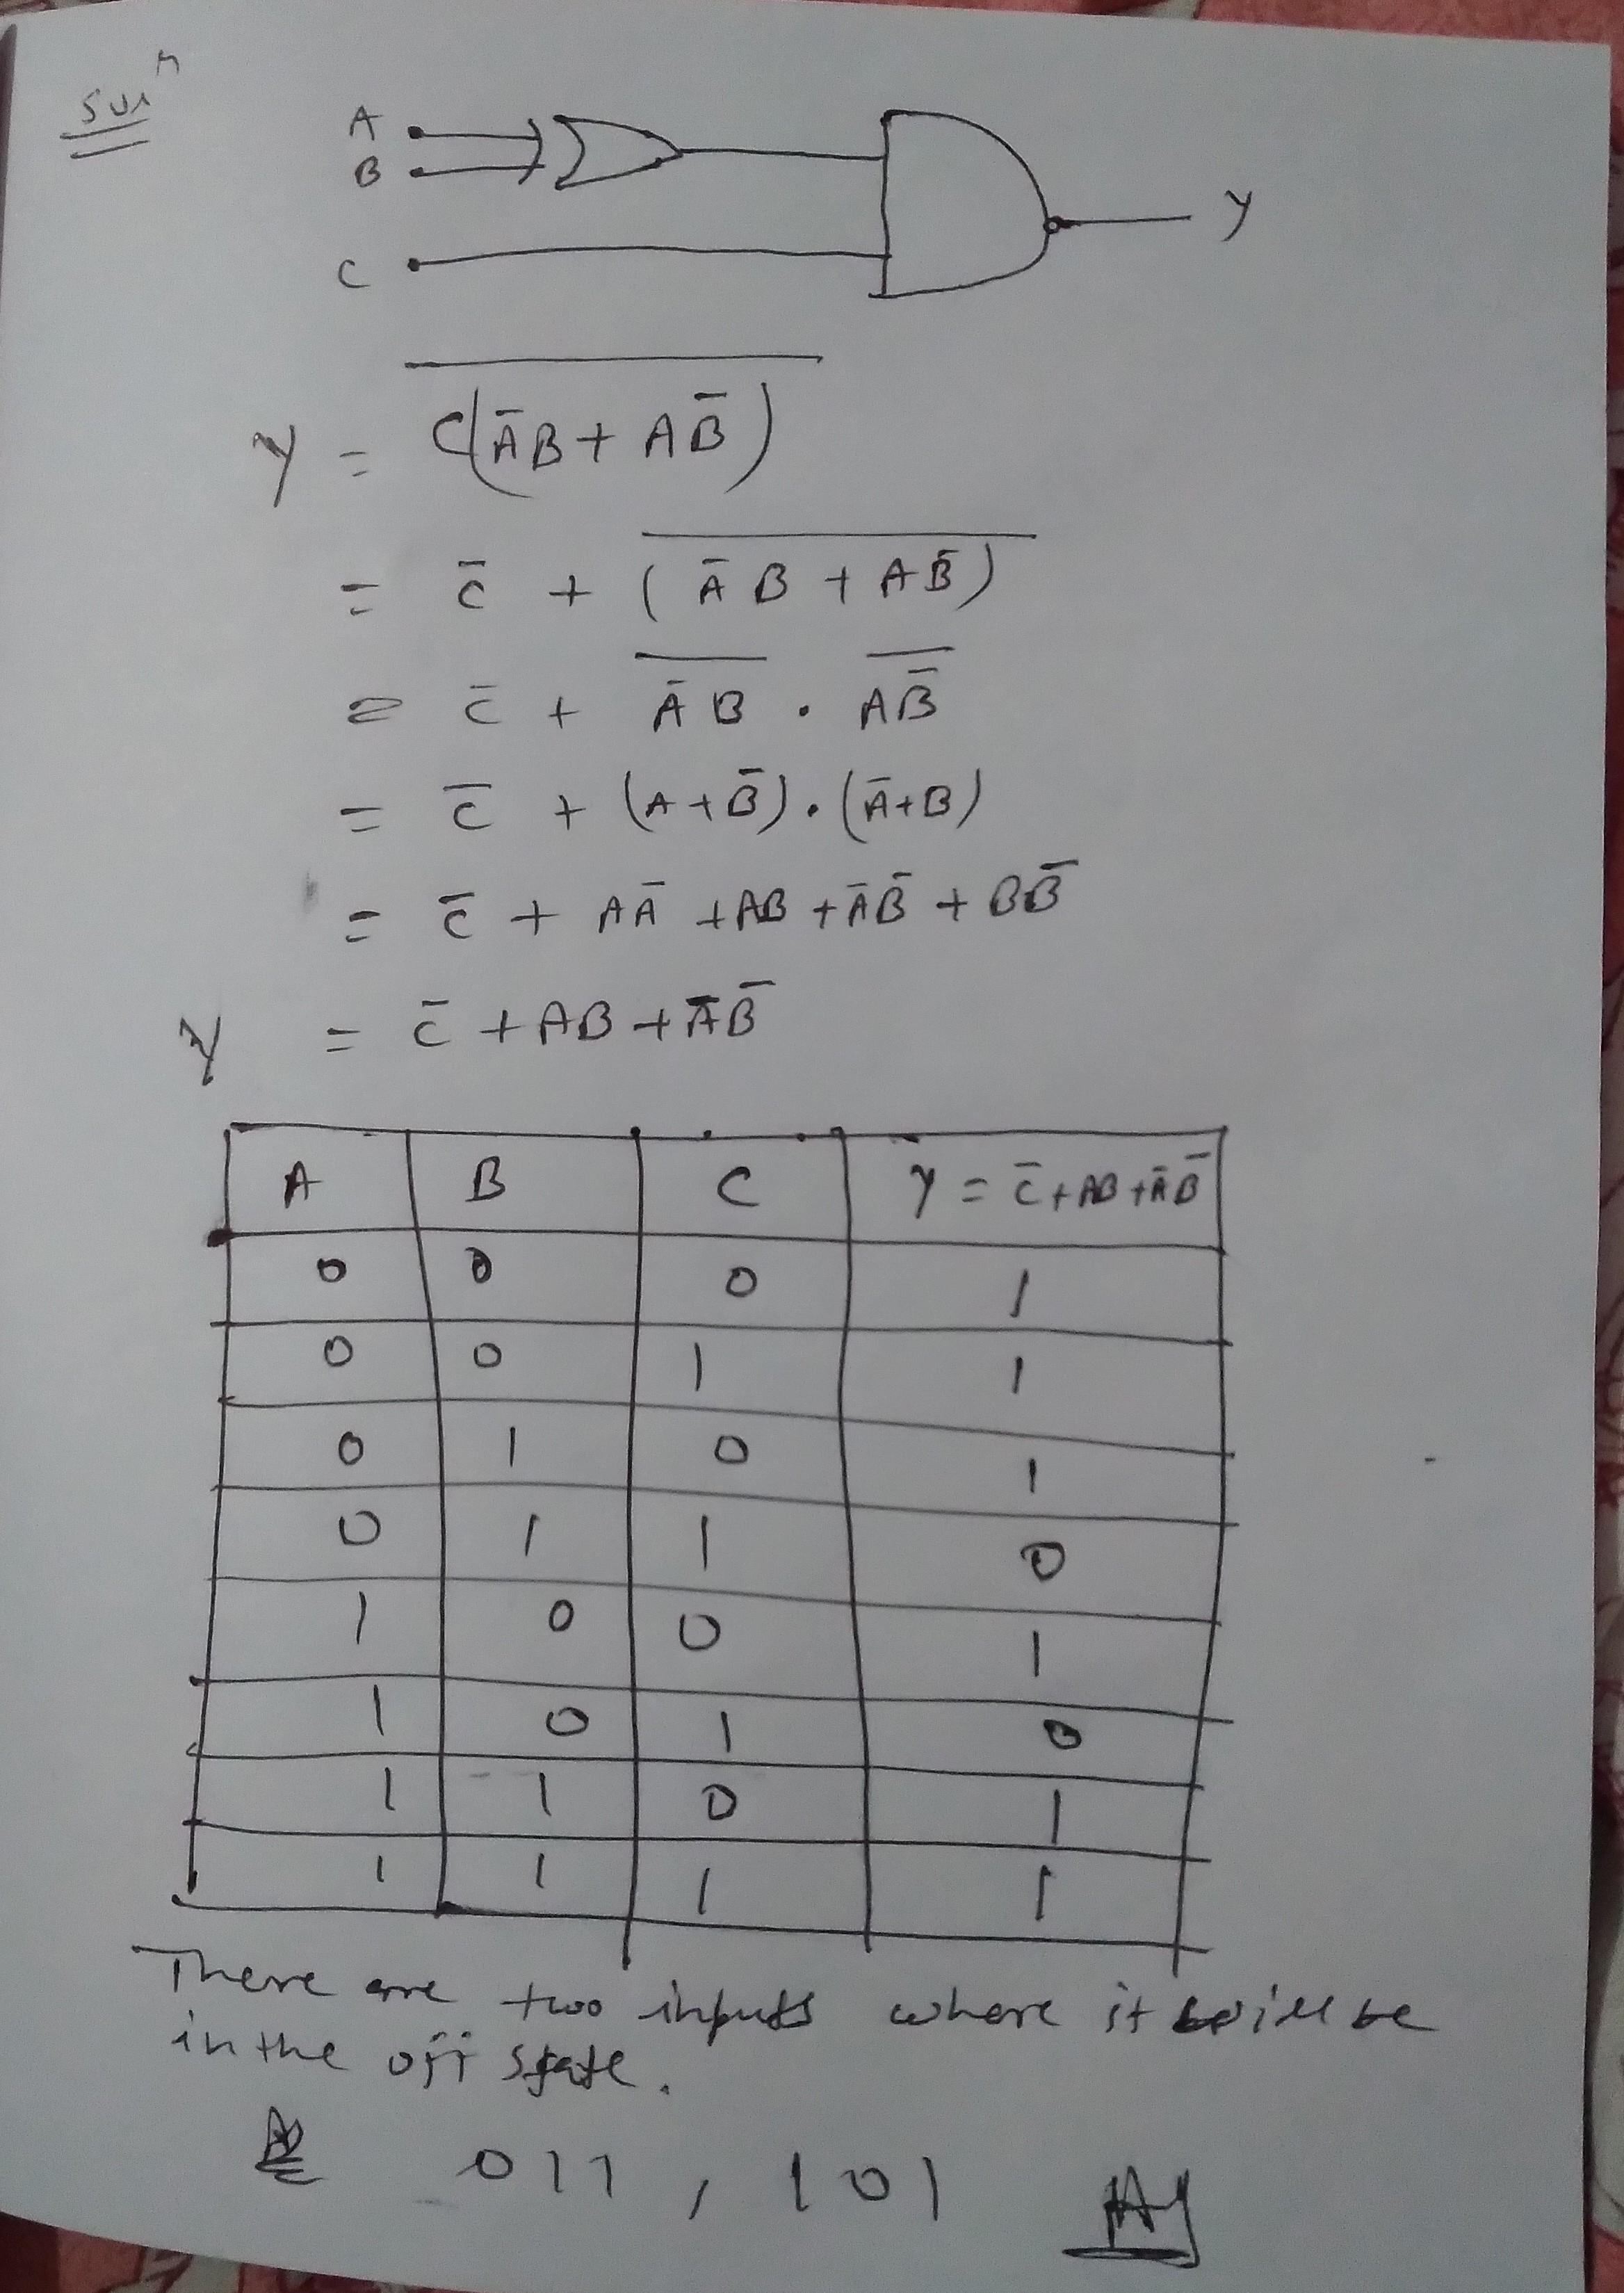 Solⁿ
A
B
C
Y
Y = \overline{C(A̅B + AB̅)}
= C̅ + \overline{(A̅B + AB̅)}
= C̅ + \overline{A̅B} . \overline{AB̅}
= C̅ + (A+B̅).(A̅+B)
= C̅ + AA̅ + AB + A̅B̅ + BB̅
Y = C̅ + AB + A̅B̅
A B C Y = C̅ + AB + A̅B̅
0 0 0 1
0 0 1 1
0 1 0 1
0 1 1 0
1 0 0 1
1 0 1 0
1 1 0 1
1 1 1 1
There are two inputs where it will be
in the off state.
011 , 101